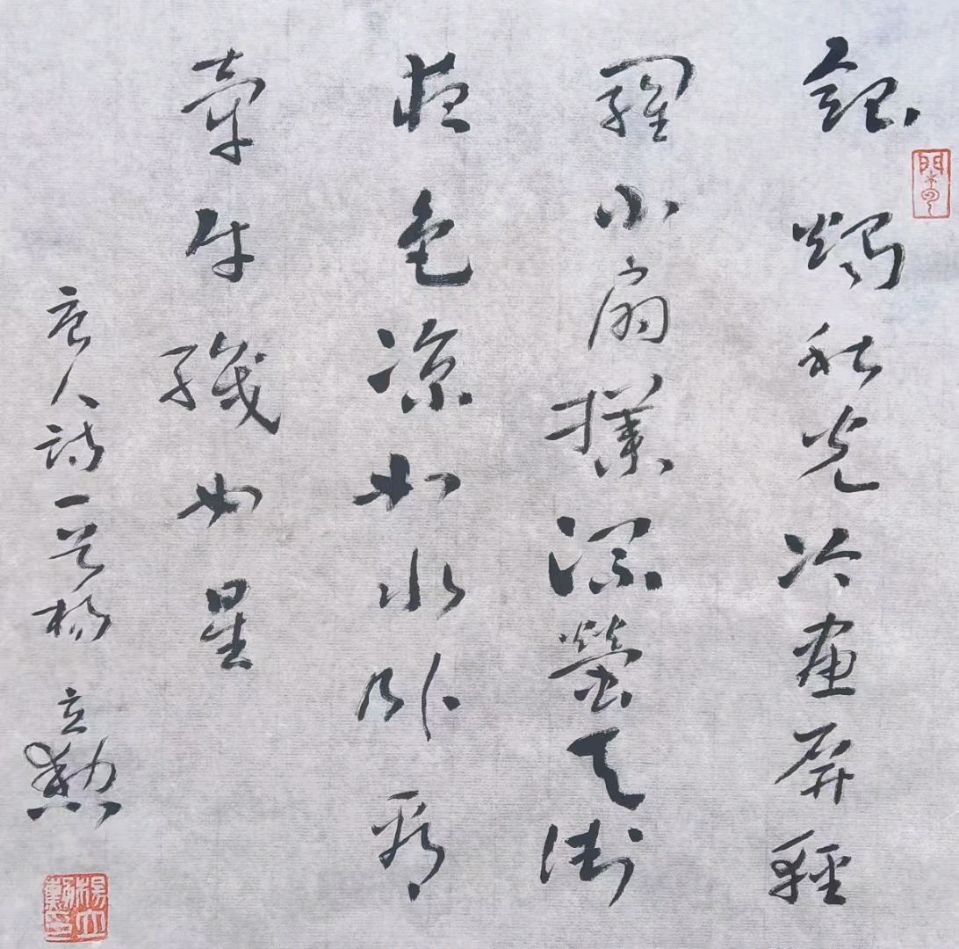 銀燭秋光冷畫屏輕
羅小扇撲流螢天街
夜色涼如水臥看
牽牛織女星
唐人詩一首楊立勳
楊立勳印